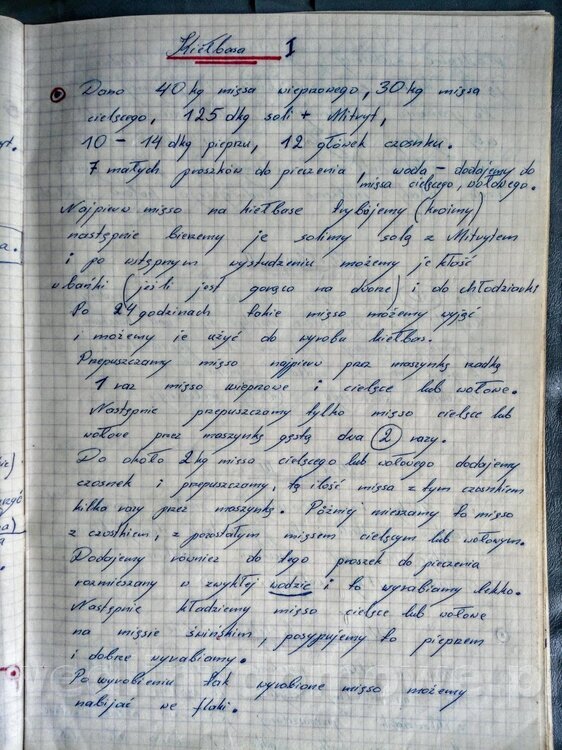 Kiełbasa I
Dono 40 kg mięsa wieprzowego, 30 kg mięsa
cielęcego, 125 dkg soli + Nitryt,
10 – 14 dkg pieprzu, 12 główek czosnku.
7 małych proszków do pieczenia, woda – dodajemy do
mięsa cielęcego, wołowego.
Najpierw mięso na kiełbase trybójemy (kroimy)
następnie bierzemy je solimy solą z Nitrytem
i po wstępnym wystudzeniu możemy je kłaść
w bańki (jeżli jest gorąco na dworze) i do chłodziarki
Po 24 godzinach takie mięso możemy wyjąć
i możemy je użyć do wyrobu kiełbas.
Przepuszczamy mięso najpierw przez maszynkę rzadką
1 raz mięso wieprzowe i cielęce lub wołowe.
Następnie przepuszczamy tylko mięso cielęce lub
wołowe przez maszynkę gęstą dwa 2 razy.
Do około 2 kg mięsa cielęcego lub wołowego dodajemy
czosnek i przepuszczamy, tą ilość mięsa z tym czosnkiem
kilka razy przez maszynkę. Później mieszamy to mięso
z czosnkiem, z pozostałym mięsem cielęcym lub wołowym.
Dodajemy również do tego proszek do pieczenia
rozmieszany w zwykłej wodzie i to wyrabiamy lekko.
Następnie kładziemy mięso cielęce lub wołowe
na mięsie świńskim, posypujemy to pieprzem
i dobrze wyrabiamy.
Po wyrobieniu tak wyrobione mięso możemy
nabijać we flaki.